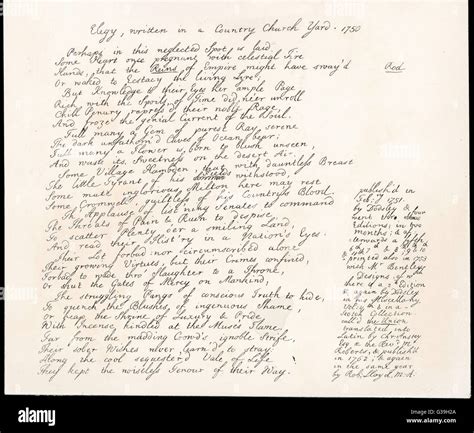 Elegy, written in a Country Church Yard. 1750
Perhaps in this neglected Spot is laid
Some Heart once pregnant with celestial Fire
Hands, that the Reins of Empire might have sway'd
Rod
Or waked to Ecstacy the living Lyre,
But Knowledge to their eyes her ample Page
Rich with the Spoils of Time did ne'er unroll
Chill Penury repress'd their noble Rage,
And froze the genial current of the Soul.
Full many a Gem of purest Ray serene
The dark unfathom'd Caves of Ocean bear;
Full many a Flower is born to blush unseen,
And waste its Sweetness on the desert Air.
Some Village Hambden, that with dauntless Breast
The little Tyrant of his Fields withstood,
Some mute inglorious Milton here may rest
Some Cromwell guiltless of his Country's Blood.
Th' Applause of list'ning Senates to command
The Threats of Pain & Ruin to despise
To scatter Plenty o'er a smiling Land,
And read their Hist'ry in a Nation's Eyes,
Their Lot forbad: nor circumscribed alone
Their growing Virtues, but their Crimes confined,
Forbad to wade thro' Slaughter to a Throne,
Or shut the Gates of Mercy on Mankind,
The struggling Pangs of conscious Truth to hide,
To quench the Blushes of ingenuous Shame,
Or heap the Shrine of Luxury & Pride
With Incense, kindled at the Muse's Flame.
Far from the madding Crowd's ignoble Strife,
Their sober Wishes never learn'd to stray:
Along the cool sequester'd Vale of Life
They kept the noiseless Tenour of their Way.
publish'd in
Feb: 1751.
by Dodsley &
went thro' four
Editions; in two
months; &
afterwards a fifth
6th 7th & 8th
printed also in 1753
with Mr Bentley's
Designs, of wch
there is a 2d Edition
& again by Dodsley
in his Miscellany,
Vol: & in a
Scotch Collection
call'd the Union.
translated into
Latin by Chr: Anstey
Esq, & the Revd Mr
Roberts, & publish'd
in 1762; & again
in the same year
by Rob: Lloyd, M:A:
alamy
Image ID: G39H2A
www.alamy.com